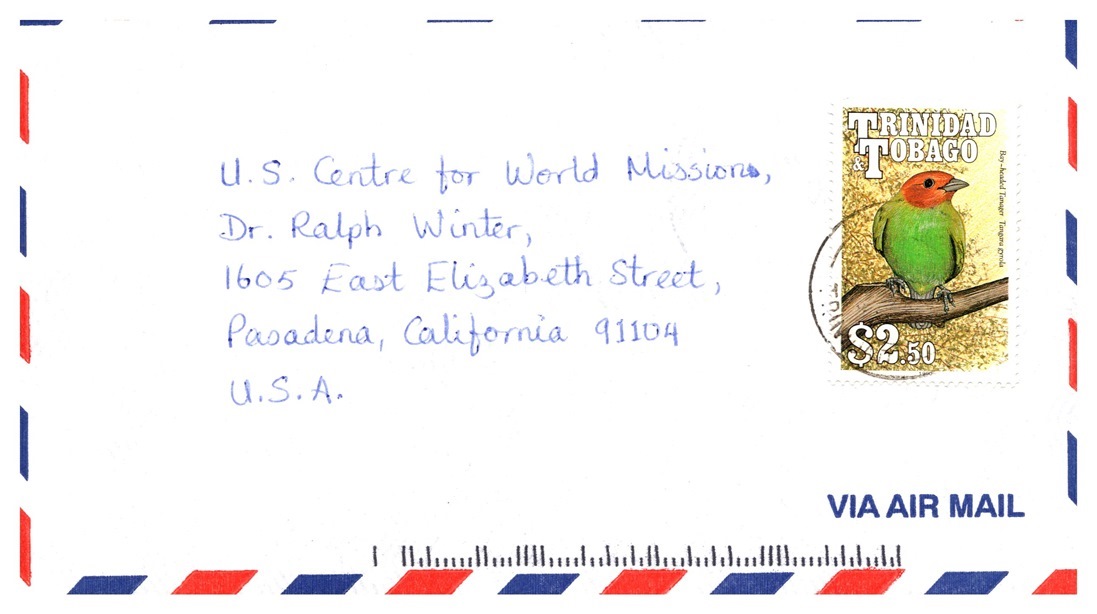 U.S. Centre for World Missions,
Dr. Ralph Winter,
1605 East Elizabeth Street,
Pasadena, California 91104
U.S.A.
TRINIDAD
& TOBAGO
Bay-headed Tanager Tangara gyrola
$2.50
TRIN
VIA AIR MAIL